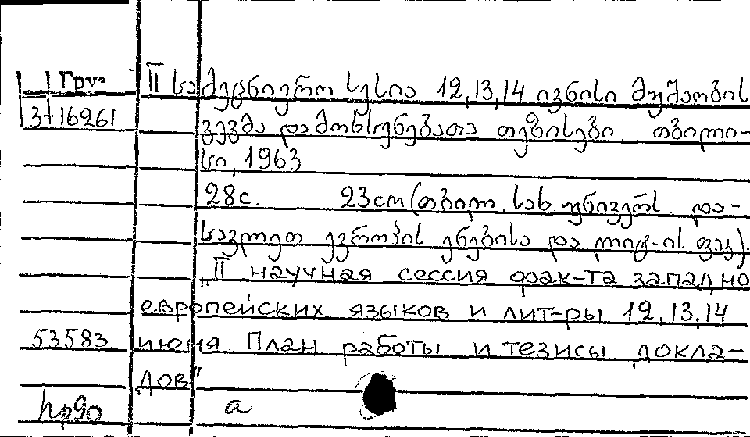 Груз II სამეცნიერო სესია 12,13,14 ივნისი მუშაობის
3-16261 გეგმა და მოხსენებათა თეზისები თბილი-
სი, 1963
28с. 23cm (თბილ. სახ. უნივერს. და-
სავლეთ ევროპის ენებისა და ლიტ-ის ფაკ).
„II научная сессия фак-та западно
европейских языков и лит-ры 12,13,14
53583 июня План работы и тезисы докла-
дов"
а